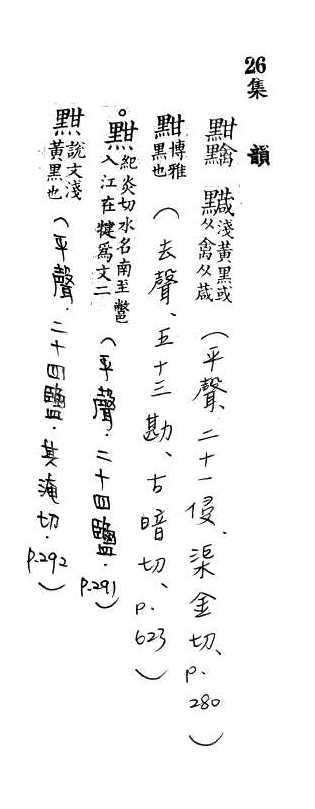 26
集韻
黚黬䵖淺黃黑或从禽从葴(平聲、二十一侵、渠金切、p.280)
黚博雅黑也(去聲、五十三勘、古暗切、p.623)
。黚紀炎切水名南至鄨邑入江在犍為文二(平聲．二十四鹽．p.291)
黚說文淺黃黑也(平聲．二十四鹽．其淹切．p.292)